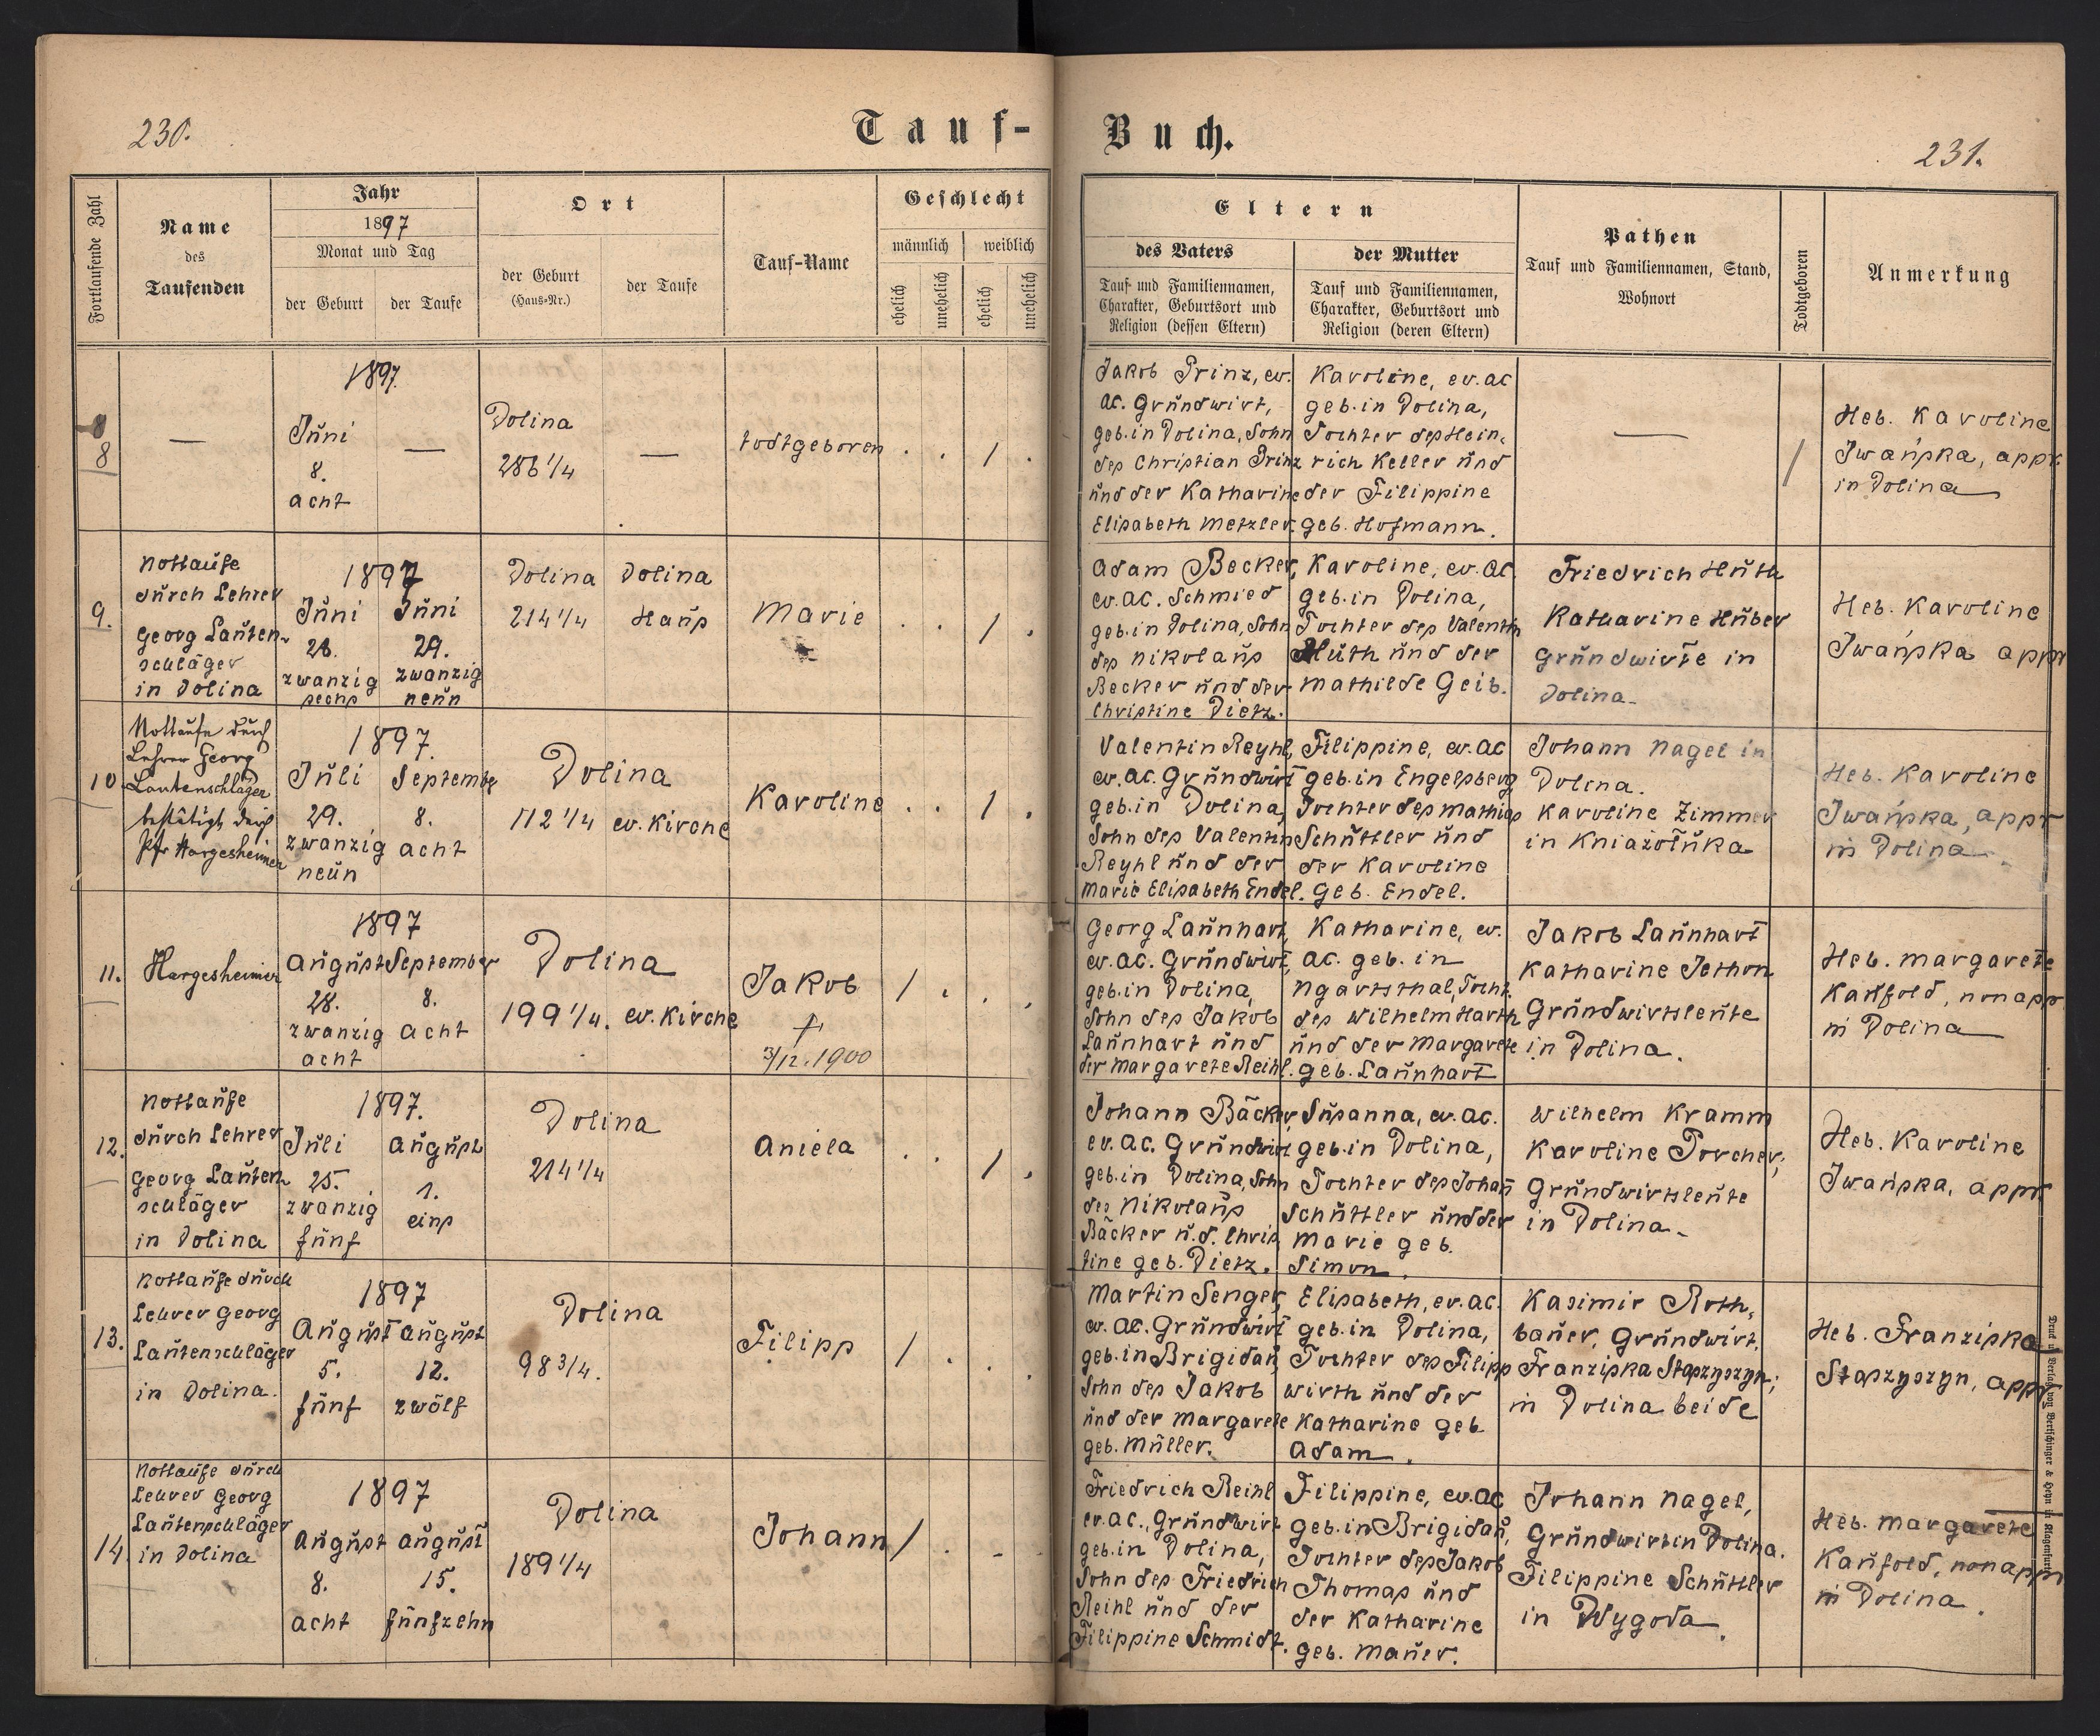 230.
Tauf-
Buch.
231.
Fortlaufende Zahl
Name
des
Taufenden
Jahr
1897
Monat und Tag
der Geburt
der Taufe
Ort
der Geburt
(Haus-Nr.)
der Taufe
Tauf-Name
Geschlecht
männlich
weiblich
ehelich
unehelich
ehelich
unehelich
Eltern
des Vaters
Tauf- und Familiennamen,
Charakter, Geburtsort und
Religion (dessen Eltern)
der Mutter
Tauf und Familiennamen,
Charakter, Geburtsort und
Religion (deren Eltern)
Pathen
Tauf und Familiennamen, Stand,
Wohnort
Todtgeboren
Anmerkung
8
—
1897.
Juni
8.
acht
—
Dolina
286 1/4
—
todtgeboren
. . / .
Jakob Prinz, ev.
ac. Grundwirt,
geb. in Dolina, Sohn
des Christian Prinz
und der Katharine
Elisabeth Metzler.
Karoline, ev. ac
geb. in Dolina,
Tochter des Hein-
rich Keller und
der Filippine
geb. Hofmann.
—
/
Heb. Karoline
Iwańska, appr
in Dolina
9.
Nottaufe
durch Lehrer
Georg Lauten-
schläger
in Dolina
1897
Juni
zwanzig
sechs
Juni
29.
zwanzig
neun
Dolina
214 1/4
Dolina
Haus
Marie
. . / .
Adam Becker,
ev. ac. Schmied
geb. in Dolina, Sohn
des Nikolaus
Becker und der
Christine Dietz.
Karoline, ev. ac.
geb. in Dolina,
Tochter des Valentin
Huth und der
Mathilde Geib.
Friedrich Huth
Katharine Huber
Grundwirte in
Dolina.
Heb. Karoline
Iwańska appr
10
Nottaufe durch
Lehrer Georg
Lautenschläger
bestätigt durch
Pfr Hargesheimer
1897.
Juli
29.
zwanzig
neun
September
8.
acht
Dolina
112 1/4
ev. Kirche
Karoline
. . / .
Valentin Reyhl,
ev. ac. Grundwirt
geb. in Dolina,
Sohn des Valentin
Reyhl und der
Marie Elisabeth Endel.
Filippine, ev. ac
geb. in Engelsberg
Tochter des Mathias
Schüttler und
der Karoline
geb. Endel.
Johann Nagel in
Dolina.
Karoline Zimmer
in Kniażołuka
Heb. Karoline
Iwańska, appr
in Dolina
11.
Hargesheimer
1897
August
28.
zwanzig
acht
September
8.
acht
Dolina
199 1/4.
ev. Kirche
Jakob
†
3/12. 1900
/ . . .
Georg Launhart,
ev. ac. Grundwirt,
geb. in Dolina,
Sohn des Jakob
Launhart und
der Margarete Reihl.
Katharine, ev.
ac. geb. in
Ngartsthal, Tocht.
des Wilhelm Harth
und der Margarete
geb. Launhart
Jakob Launhart
Katharine Jethon
Grundwirtsleute
in Dolina.
Heb. Margarete
Kaufold, nonappr
in Dolina
12.
Nottaufe
durch Lehrer
Georg Lauten-
schläger
in Dolina
1897.
Juli
25.
zwanzig
fünf
August
1.
eins
Dolina
214 1/4
Aniela
. . / .
Johann Bäcker,
ev. ac. Grundwirt
geb. in Dolina, Sohn
des Nikolaus
Bäcker u. d. Chris
tine geb. Dietz.
Susanna, ev. ac.
geb. in Dolina,
Tochter des Johann
Schüttler und der
Marie geb.
Simon.
Wilhelm Kramm
Karoline Porcher;
Grundwirtsleute
in Dolina.
Heb. Karoline
Iwańska, appr
13.
Nottaufe durch
Lehrer Georg
Lautenschläger
in Dolina.
1897
August
5.
fünf
August
12.
zwölf
Dolina
98 3/4.
Filipp
/ . . .
Martin Senger,
ev. ac. Grundwirt
geb. in Brigidau,
Sohn des Jakob
und der Margarete
geb. Müller.
Elisabeth, ev. ac.
geb. in Dolina,
Tochter des Filipp
Wirth und der
Katharine geb
Adam.
Kasimir Roth-
bauer, Grundwirt,
Franziska Staszyszyn;
in Dolina beide
Heb. Franziska
Staszyszyn, appr
14.
Nottaufe durch
Lehrer Georg
Lautenschläger
in Dolina
1897
August
8.
acht
August
15.
fünfzehn
Dolina
189 1/4
Johann
/ . - .
Friedrich Reihl
ev. ac., Grundwirt
geb. in Dolina,
Sohn des Friedrich
Reihl und der
Filippine Schmidt.
Filippine, ev. ac
geb. in Brigidau,
Tochter des Jakob
Thomas und
der Katharine
geb. Mauer.
Johann Nagel,
Grundwirt in Dolina.
Filippine Schüttler
in Wygoda.
Heb. Margarete
Kaufold, nonappr
in Dolina.
Druck u. Verlag von Bertschinger & Heyn in Klagenfurt.